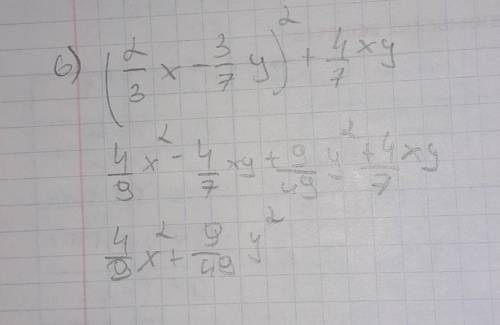 б) (2/3 x - 3/7 y)² + 4/7 xy
4/9 x² - 4/7 xy + 9/49 y² + 4/7 xy
4/9 x² + 9/49 y²